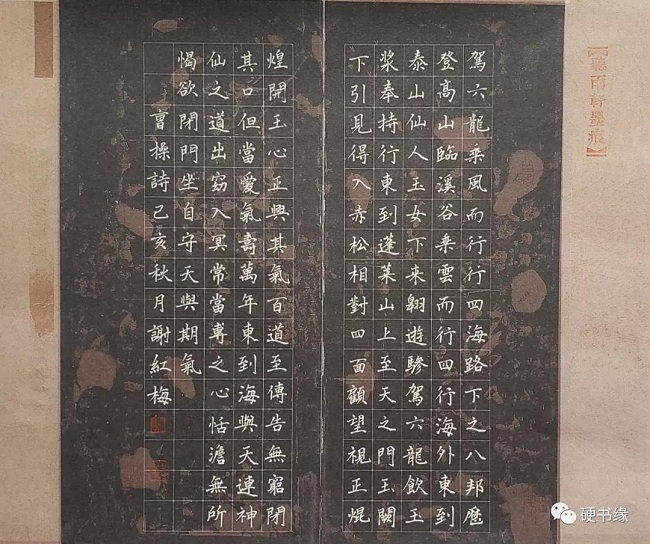 【聽雨軒墨痕】
駕六龍乘風而行行四海路下之八邦歷
登高山臨溪谷乘雲而行四行海外東到
泰山仙人玉女下來翱遊驂駕六龍飲玉
漿奉持行東到蓬萊山上至天之門玉闕
下引見得入赤松相對四面顧望視正焜
煌開玉心正興其氣百道至傳告無窮閉
其口但當愛氣壽萬年東到海與天連神
仙之道出窈入冥常當專之心恬澹無所
愒欲閉門坐自守天與期氣
曹操詩己亥秋月謝紅梅
硬书缘